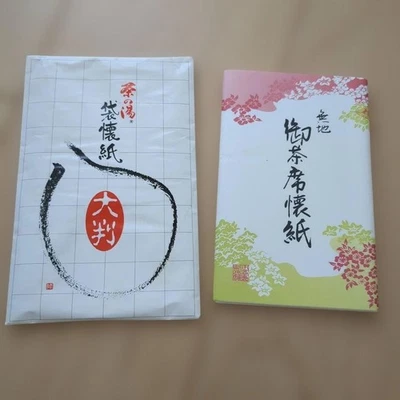 茶の湯
袋懐紙
大判
無地
御茶席懐紙